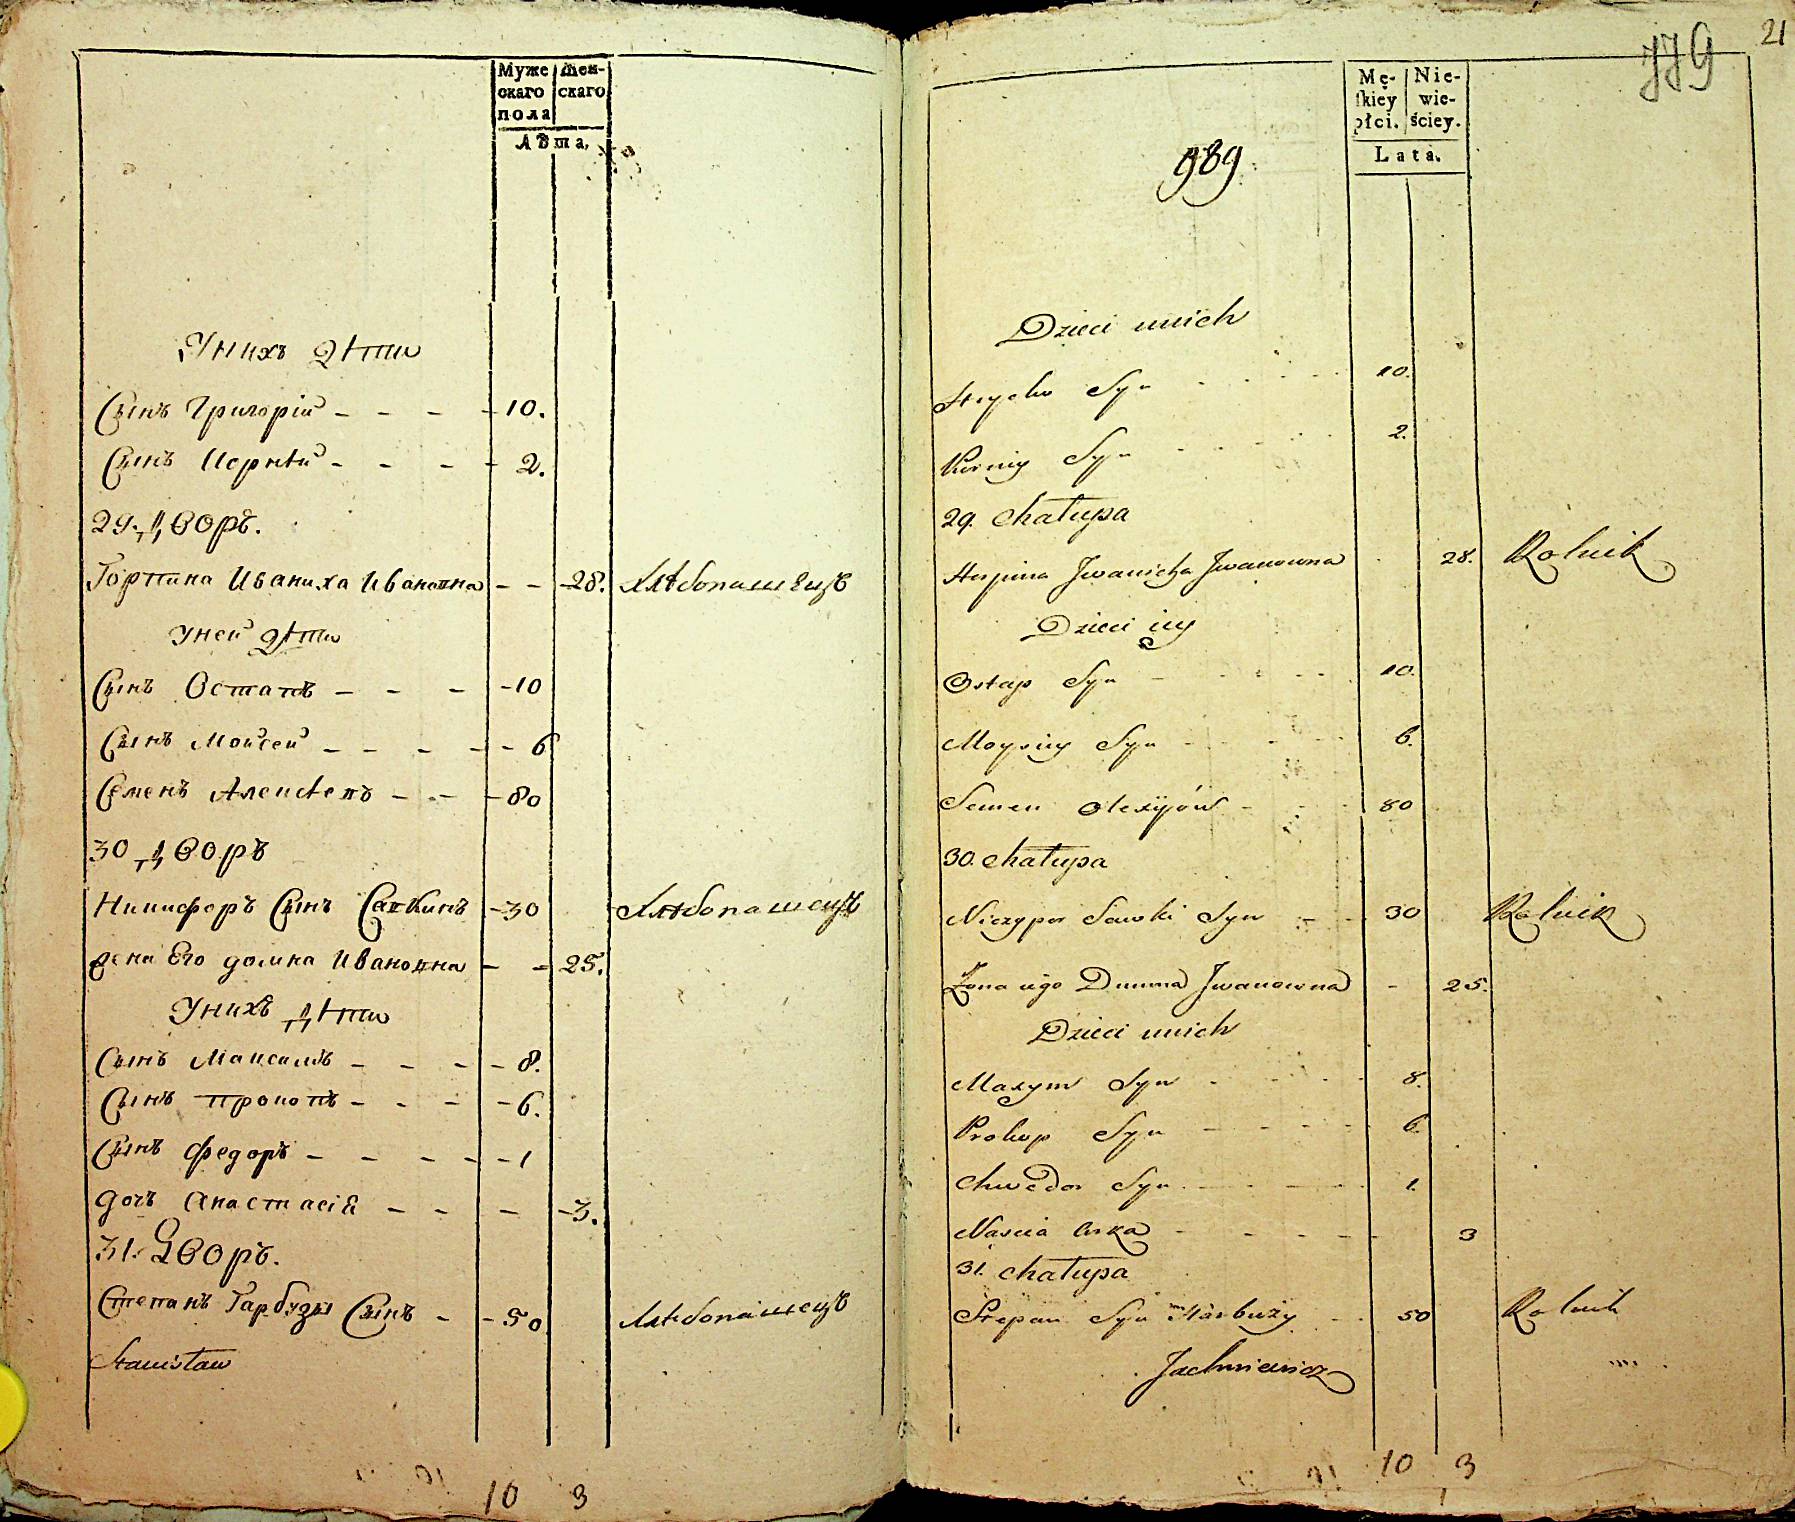 Муже Жен-
скаго скаго
пола
Лѣта.
Унихъ Дѣти
Сынъ Григорій - - - - 10.
Сынъ Корнѣй - - - - 2.
29. Дворъ.
Горпина Иваниха Ивановна - - 28. Хлѣбопашецъ
Уней Дѣти
Сынъ Остапъ - - - 10
Сынъ Мойсей - - - - 6
Семенъ Алексѣевъ - - - 80
30 Дворъ
Никифоръ Сынъ Савкинъ - 30 Хлѣбопашецъ
Жена Его Домна Ивановна - - 25.
Унихъ Дѣти
Сынъ Максимъ - - - - 8.
Сынъ Прокопъ - - - - 6.
Сынъ Федоръ - - - - - 1
Дочь Анастасія - - - - 3.
31. Дворъ.
Степанъ Гарбузы Сынъ - - 50 Хлѣбопашецъ
Stanisław
10 3
779 21
Mę- Nie-
skiey wie-
płci. ściey.
Lata.
989
Dzieci unich
Hrycko Syn - - - - 10.
Korniy Syn - - - - 2.
29. Chałupa
Horpina Jwanicha Jwanowna - 28. Rolnik
Dzieci iey
Ostap Syn - - - - 10.
Moysiey Syn - - - - 6.
Semen Olexyiów - - - 80
30. Chałupa
Niczypor Sawki Syn - - 30 Rolnik
Żona iego Dumna Jwanowna - 25.
Dzieci unich
Maxym Syn - - - - 8.
Prokop Syn - - - - 6.
Chwedor Syn - - - - 1.
Nascia Crka - - - - - 3
31. Chałupa
Stepan Syn Harbuzy - - 50 Rolnik
Jachniewicz
10 3